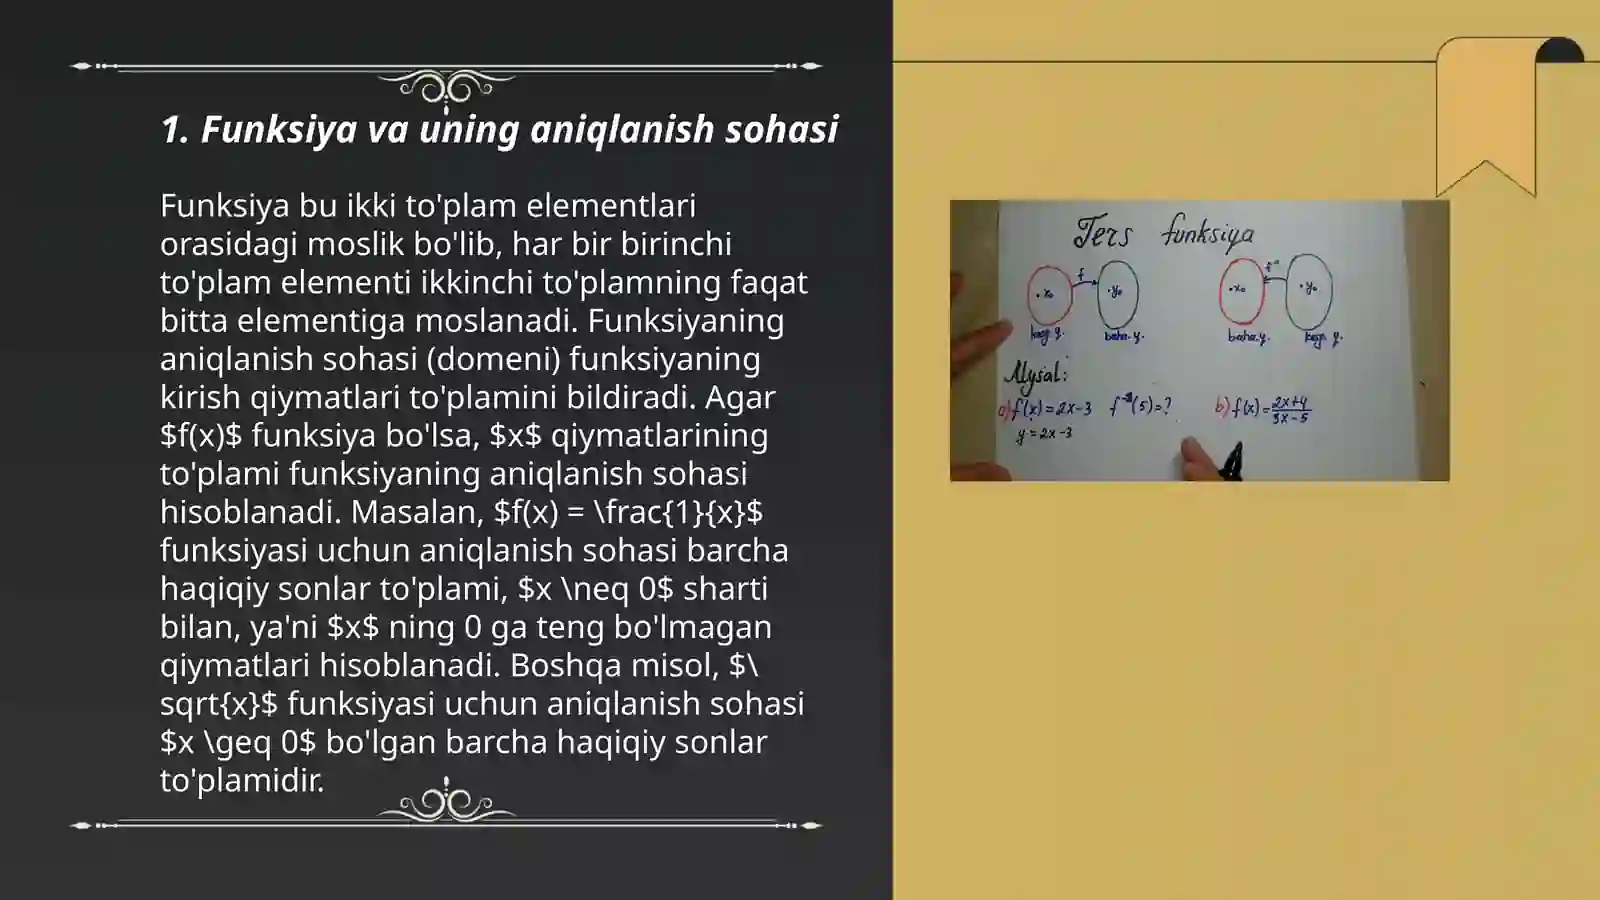 1. Funksiya va uning aniqlanish sohasi
Funksiya bu ikki to'plam elementlari
orasidagi moslik bo'lib, har bir birinchi
to'plam elementi ikkinchi to'plamning faqat
bitta elementiga moslanadi. Funksiyaning
aniqlanish sohasi (domeni) funksiyaning
kirish qiymatlari to'plamini bildiradi. Agar
$f(x)$ funksiya bo'lsa, $x$ qiymatlarining
to'plami funksiyaning aniqlanish sohasi
hisoblanadi. Masalan, $f(x) = \frac{1}{x}$
funksiyasi uchun aniqlanish sohasi barcha
haqiqiy sonlar to'plami, $x \neq 0$ sharti
bilan, ya'ni $x$ ning 0 ga teng bo'lmagan
qiymatlari hisoblanadi. Boshqa misol, $\
sqrt{x}$ funksiyasi uchun aniqlanish sohasi
$x \geq 0$ bo'lgan barcha haqiqiy sonlar
to'plamidir.
Ters funksiya
f f⁻¹
x₀ y₀ x₀ y₀
baha.y. baha.y.
Mysal:
a) f(x)=2x-3 f⁻¹(5)=? b) f(x)=2x+4/3x-5
y=2x-3